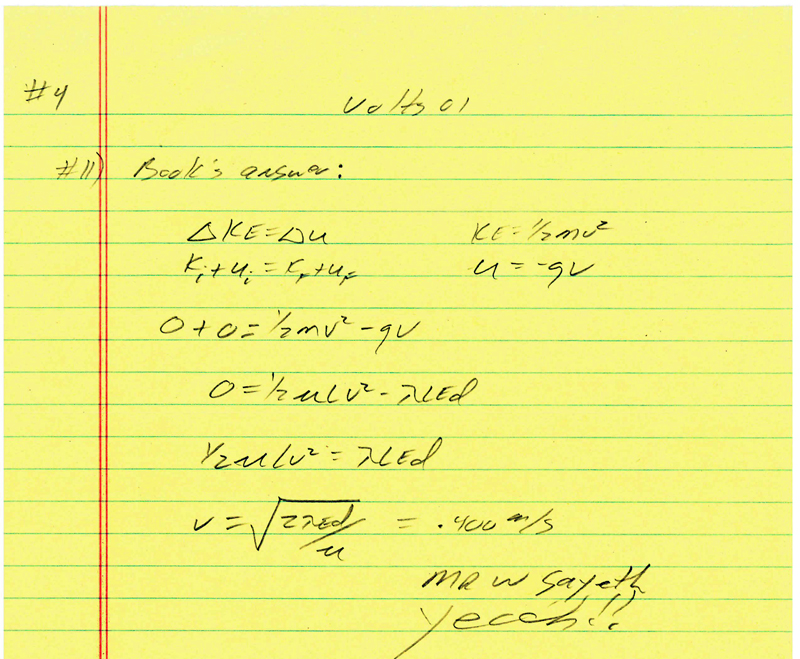 #4 Volts 01
#11) Book's answer:
ΔKE=Δu KE=½mv²
Kᵢ+uᵢ=K_F+u_F u=-qv
0+0=½mv²-qv
0=½μLv²-λLEd
½μLv²=λLEd
v=√2λEd/μ = .400 m/s
MR W Sayeth
Yecch!!